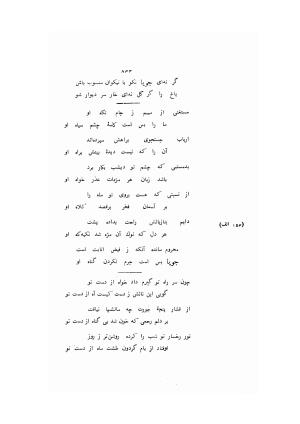 ۸۶۳
گر نه‌ای جویا نکو با نیکوان منسوب باش
باغ را گر گل نه‌ای خار سر دیوار شو
مستغنی از سیم ز جام نگاه او
ما را بس است کاسهٔ چشم سیاه او
ارباب جستجوی براهش سپرده‌اند
آن را که نیست دیدهٔ بینش براه او
بدمستیی که چشم تو دیشب بکار برد
باشد زبان هر مژه‌ات عذر خواه او
از نسبتی که هست بروی تو ماه را
بر آسمان فخر برقصد کلاه او
دایم بدارباش راحت بداده پشت
(۴۵۰ : الف)
هر دل که نوک آن مژه شد تکیه‌گاه او
محروم مانده آنکه ز فیض انابت است
جویا بس است جرم نکردن گناه او
چون سر راه تو گیرم داد خواه از دست تو
گویی این نالش ز دست کیست آه از دست تو
از فشار پنجهٔ جورت چه سانشها نیافت
بر دلم رحمی که خون شد بی گناه از دست تو
نور رخسار تو شب را کرده روشن‌تر ز روز
اوفتاد از بام گردون طشت ماه از دست تو